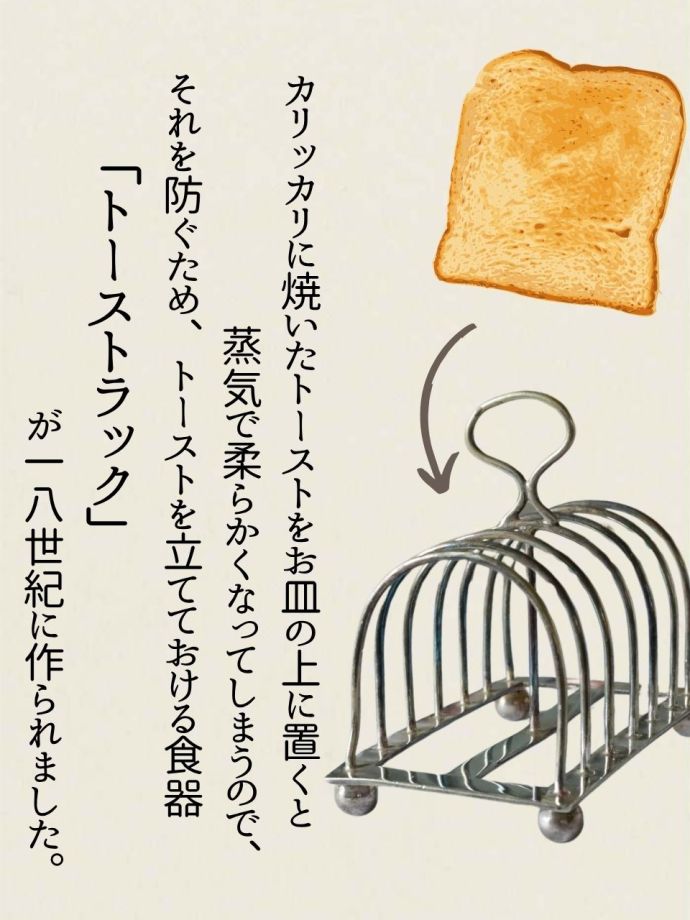 カリッカリに焼いたトーストをお皿の上に置くと
蒸気で柔らかくなってしまうので、
それを防ぐため、トーストを立てておける食器
「トーストラック」
が一八世紀に作られました。